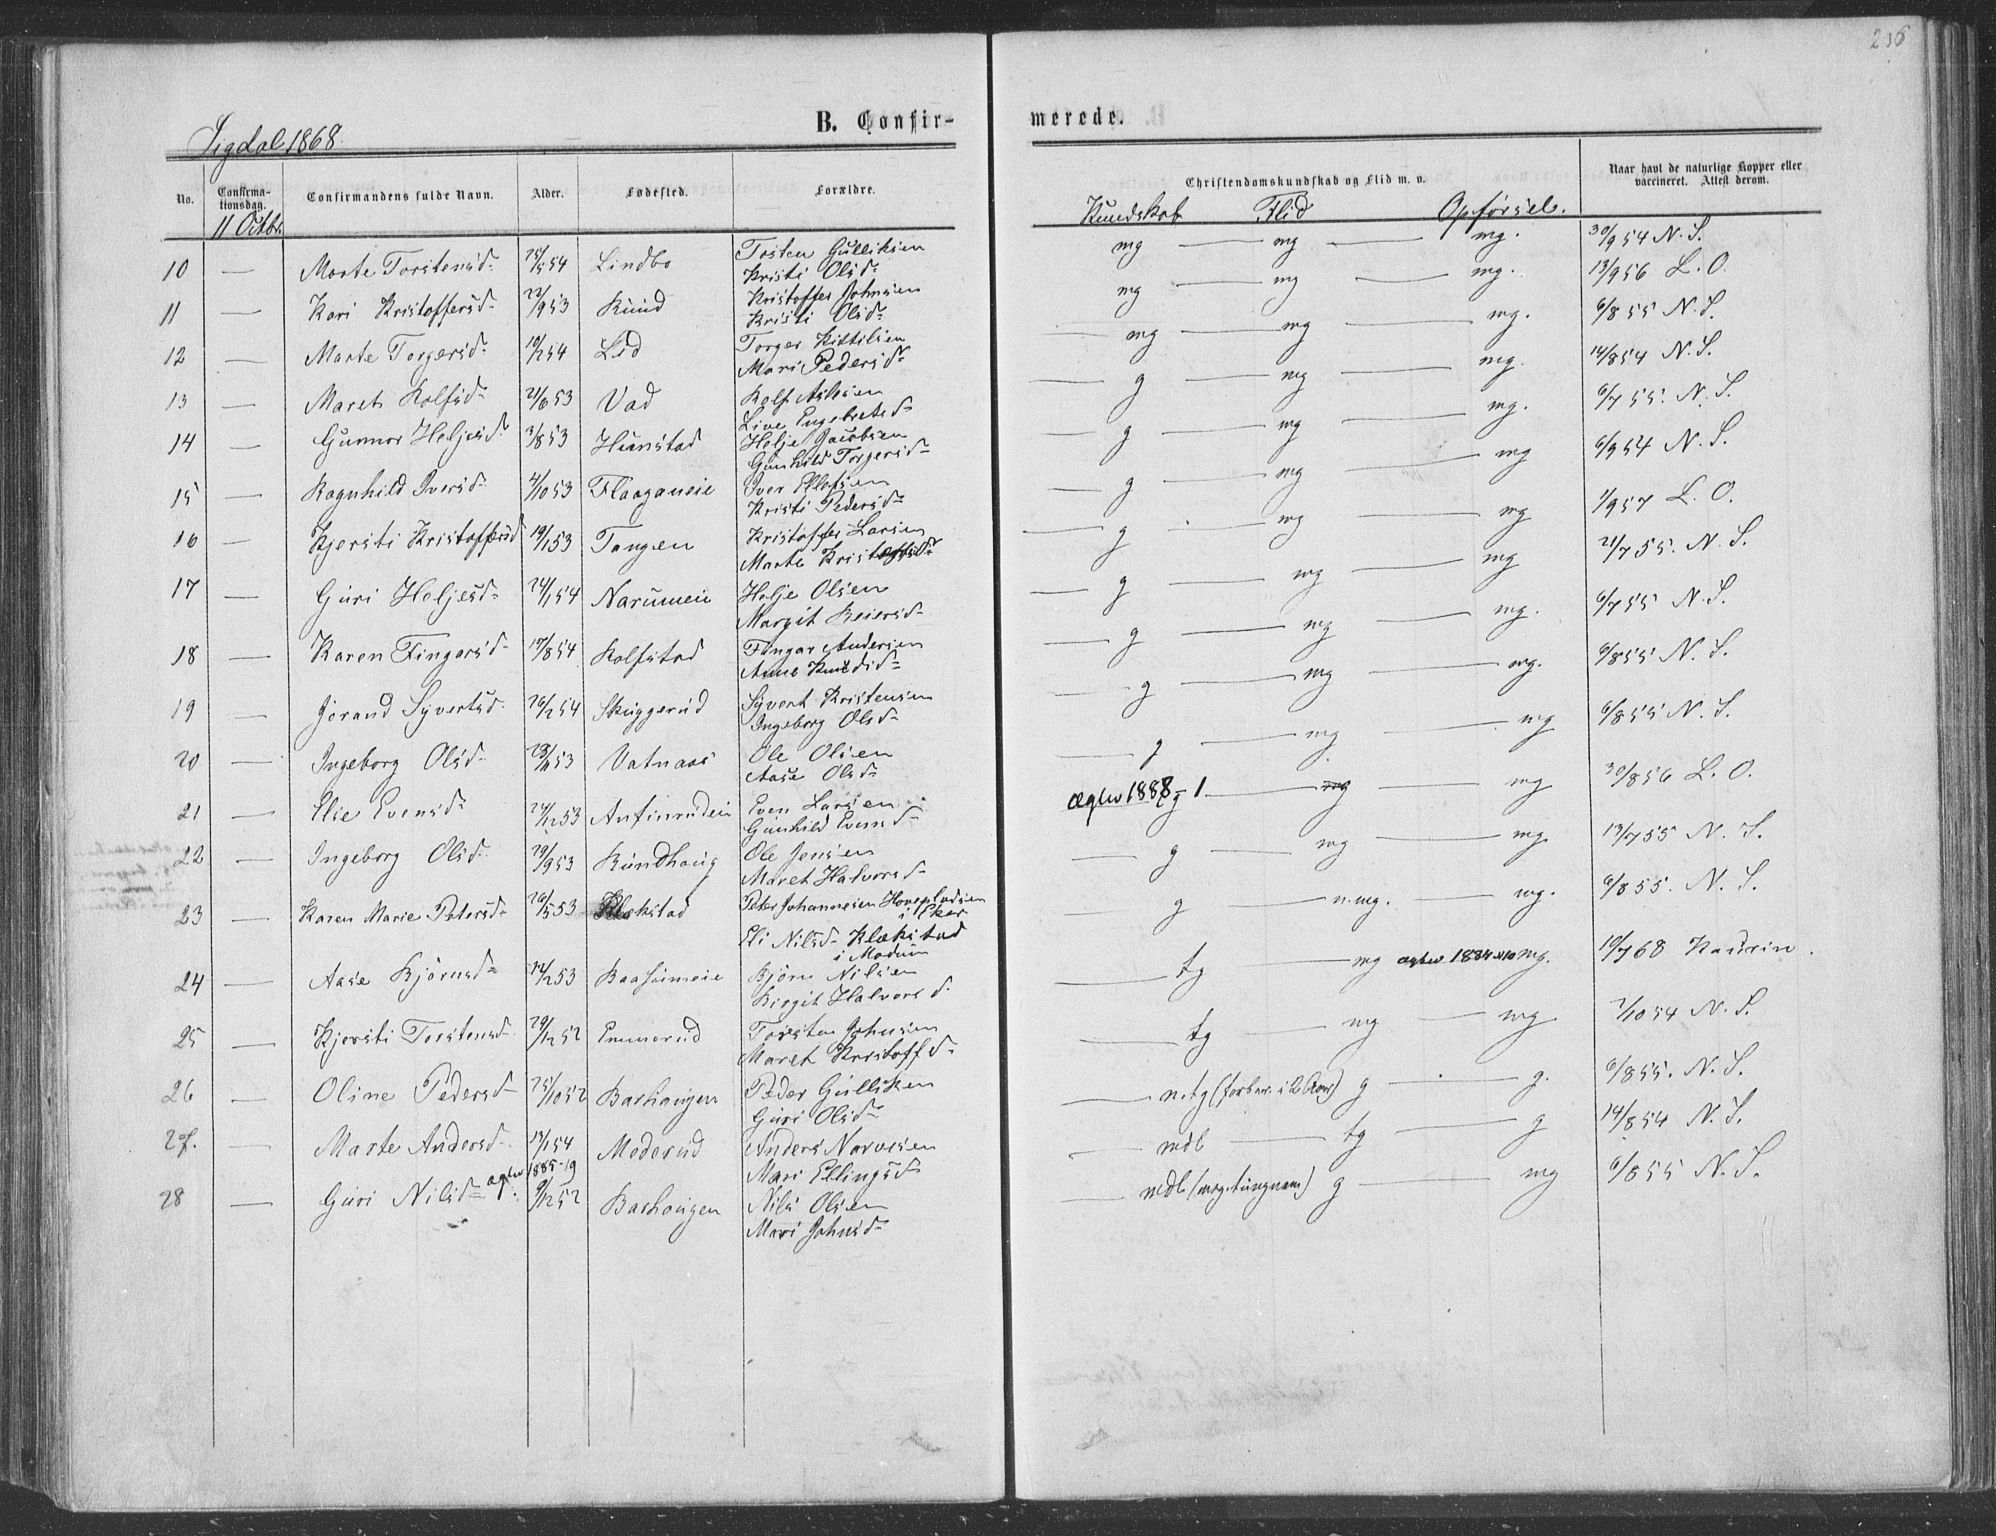 216
Sigdal 1868.
B. Confir-
merede.
No.
Confirma-tionsdag.
Confirmandens fulde Navn.
Alder.
Fødested.
Forældre.
Christendomskundskab og Flid m. v.
Naar havt de naturlige Kopper eller vaccineret. Attest derom.
11 Octbr.
Kundskab Flid Opførsel.
10 — Marte Torstensd. 25/5 54 Lindbo Tosten Gulliksen mg — mg — mg. 30/9 54 N. S.
Kristi Olsd.
11 — Kari Kristoffersd. 22/9 53 Rund Kristoffer Johnsen mg — mg — mg. 13/9 56 L. O.
Kristi Olsd.
12 — Marte Torgersd. 10/2 54 Lid Torger Kittilsen — mg — mg — mg. 6/8 55 N. S.
Mari Pedersd.
13 — Maret Rolfsd. 21/6 53 Vad Rolf Aslesen — g — mg — mg. 14/8 54 N. S.
Live Engebretsd.
14 — Gunnor Heljesd. 3/8 53 Hunstad Helje Jacobsen — g — mg — mg. 6/7 55. N. S.
Gunhild Torgersd.
15 — Ragnhild Iversd. 4/10 53 Flaaganeie Iver Ellefsen — g — mg — mg 6/9 54 N. S.
Kristi Pedersd.
16 — Kjersti Kristoffersd 19/1 53 Tangen Kristoffer Larsen — g — mg — mg 1/9 57 L. O.
Marte Kristoffsd.
17 — Guri Heljesd. 24/1 54 Narumeie Helje Olsen — g — mg — mg 21/7 55. N. S.
Margit Reiersd.
18 — Karen Fingarsd. 17/8 54 Rolfstad Fingar Andersen — g — mg — mg. 6/7 55 N. S.
Anne Knudsd.
19 — Jørand Syvertsd. 26/2 54 Skuggerud Syvert Kristensen — g — mg — mg. 6/8 55 N. S.
Ingeborg Olsd.
20 — Ingeborg Olsd. 53 Vatnaas Ole Olsen — g — mg — mg 6/8 55 N. S.
Aase Olsd.
21 — Else Evensd. 24/12 53 Anfinrudeie Even Larsen ægtev 1888 g 1 — mg — mg 30/8 56 L. O.
Gunhild Evensd.
22 — Ingeborg Olsd. 29/9 53 Rundhaug Ole Jensen — g — mg — mg. 13/7 55 N. S.
Maret Halvorsd.
23 — Karen Marie Petersd. 26/5 53 Klækstad Peter Johannesen Hovepladsen g — n.mg. — mg. 6/8 55. N. S.
i Eker
Eli Nilsd. Klækstad
i Modum
24 — Aase Bjørnsd. 12/2 53 Baasumeie Bjørn Nilsen — tg — mg ægtev 1884 n10 mg. 10/7 68 Kaurin.
Birgit Halvorsd.
25 — Kjersti Torstensd. 29/12 52 Emmerud Torsten Johnsen — tg — mg — mg 2/10 54 N. S.
Maret Kristoffd.
26 — Oline Pedersd 25/10 52 Bashaugen Peder Gulliksen — n.tg (forber. i 2 Aar) g — g. 6/8 55. N. S.
Guri Olsd.
27. — Marte Andersd. 13/1 54 Moderud Anders Narvesen — mdl — tg — g 14/8 54 N. S.
Mari Ellingsd.
ægtev 1885-19
28 — Guri Nilsd. 9/12 52 Bashaugen Nils Olsen — mdl. (meg. tungnem) g — mg 6/8 55 N. S.
Mari Johnsd.